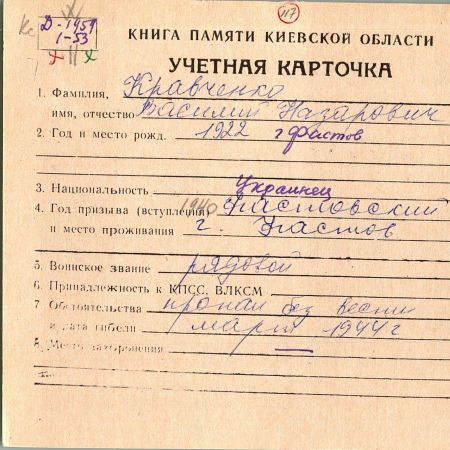 117
Д-1951
1-53
КНИГА ПАМЯТИ КИЕВСКОЙ ОБЛАСТИ
УЧЕТНАЯ КАРТОЧКА
1. Фамилия, Кравченко
имя, отчество Василий Назарович
2. Год и место рожд. 1922 г Фастов
3. Национальность Украинец
4. Год призыва (вступления) 1940 Фастовский
и место проживания г. Фастов
5. Воинское звание рядовой
6. Принадлежность к КПСС, ВЛКСМ
7 Обстоятельства пропал без вести
и дата гибели март -1944 г
8. Место захоронения —